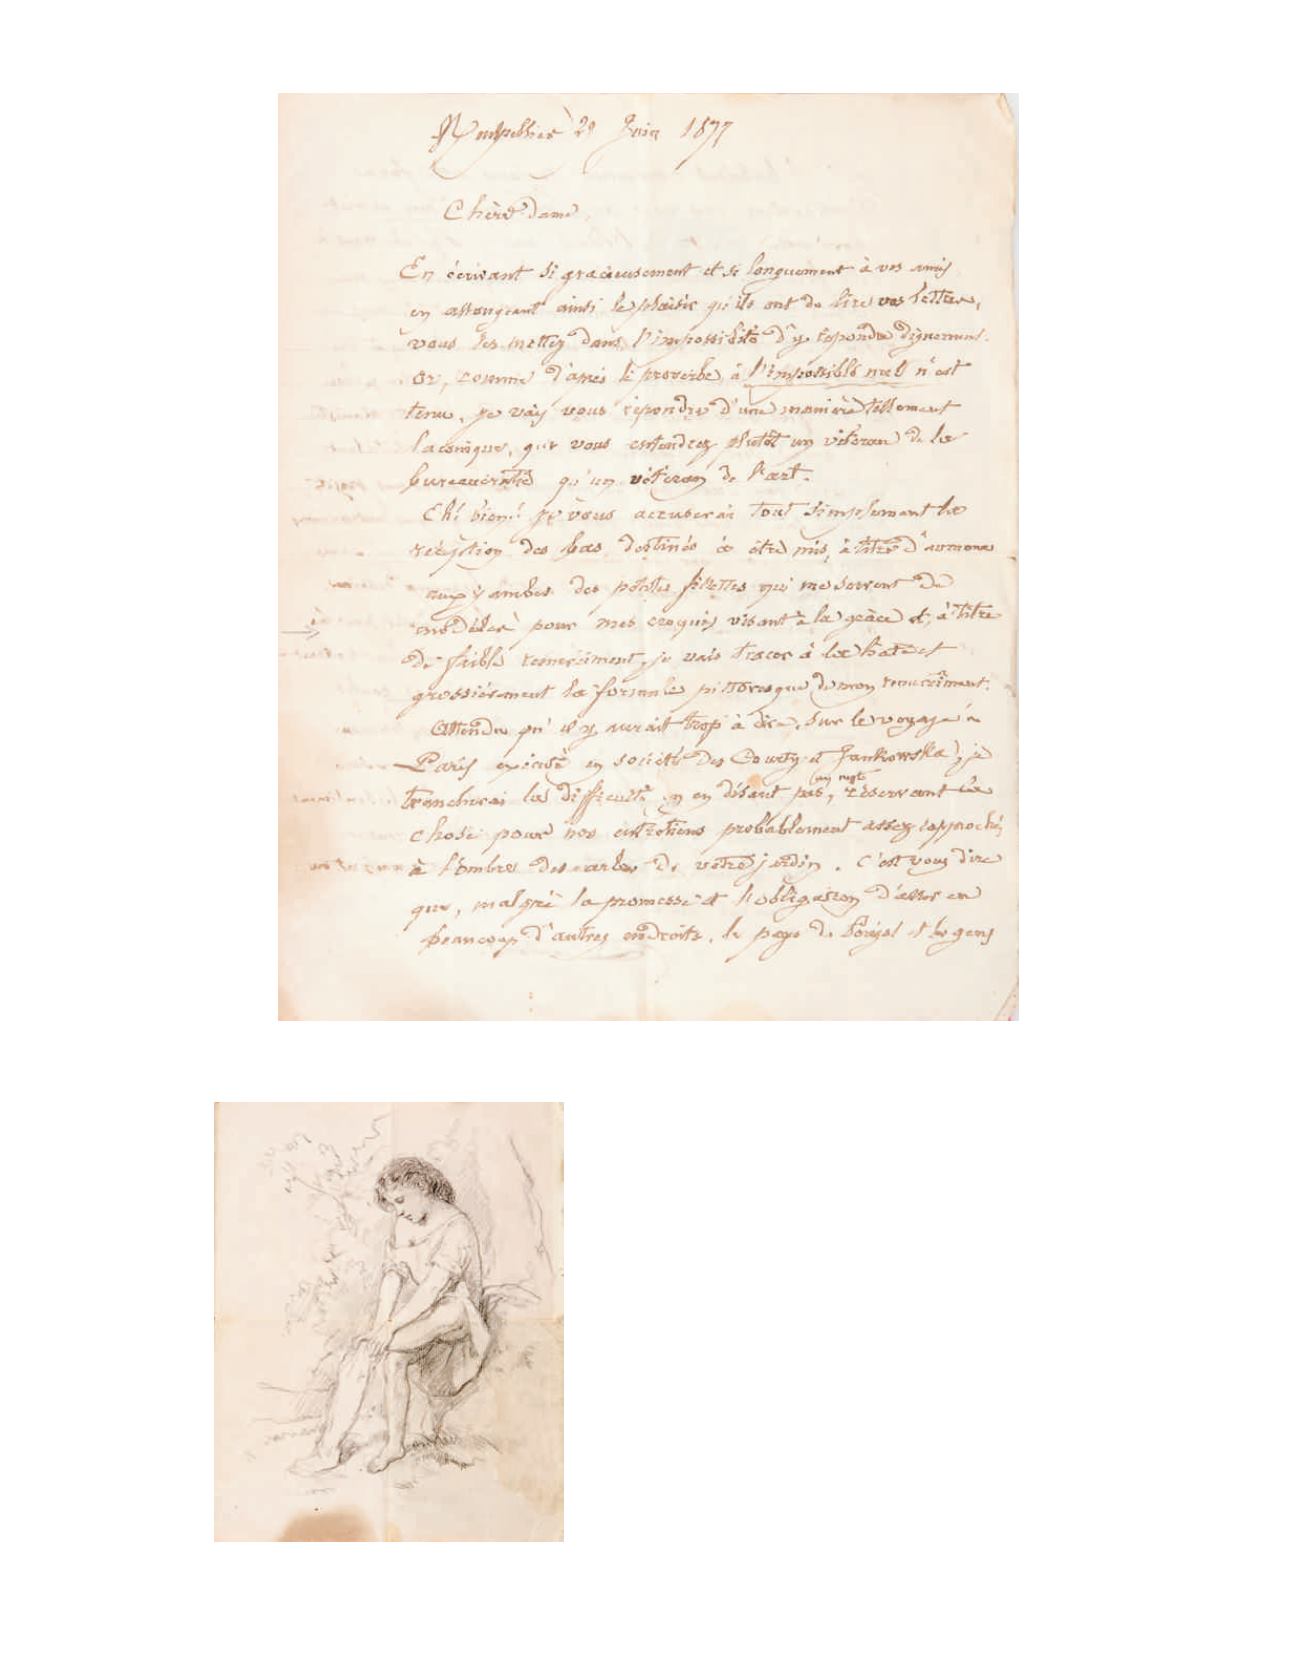 Montpellier 29 Juin 1877
Chère dame,
En écrivant si gracieusement et si longuement à vos amis
en allongeant ainsi le plaisir qu'ils ont de lire vos lettres,
vous les mettez dans l'impossibilité d'y répondre dignement.
Or, comme d'après le proverbe, à l'impossible nul n'est
tenu, je vais vous répondre d'une manière tellement
laconique, que vous entendrez plutôt un vétéran de la
bureaucratie qu'un vétéran de l'art.
Eh! bien! je vous accuserai tout simplement la
réception des bas destinés à être mis, à titre d'aumone
aux jambes des petites fillettes qui me servent de
modèles pour mes croquis visant à la grâce et, à titre
de faible remerciment, je vais tracer à la hâte et
grossièrement la formule pittoresque de mon remerciment.
Attendu qu'il y aurait trop à dire, sur le voyage à
Paris exécuté en société des Courty et Jankowska, je
trancherai les difficultés en en disant pas un mot, réservant la
chose pour nos entretiens probablement assez rapprochés
à l'ombre des arbres de votre jardin. C'est vous dire
que, malgré la promesse et l'obligation d'aller en
beaucoup d'autres endroits, le pays de et les gens